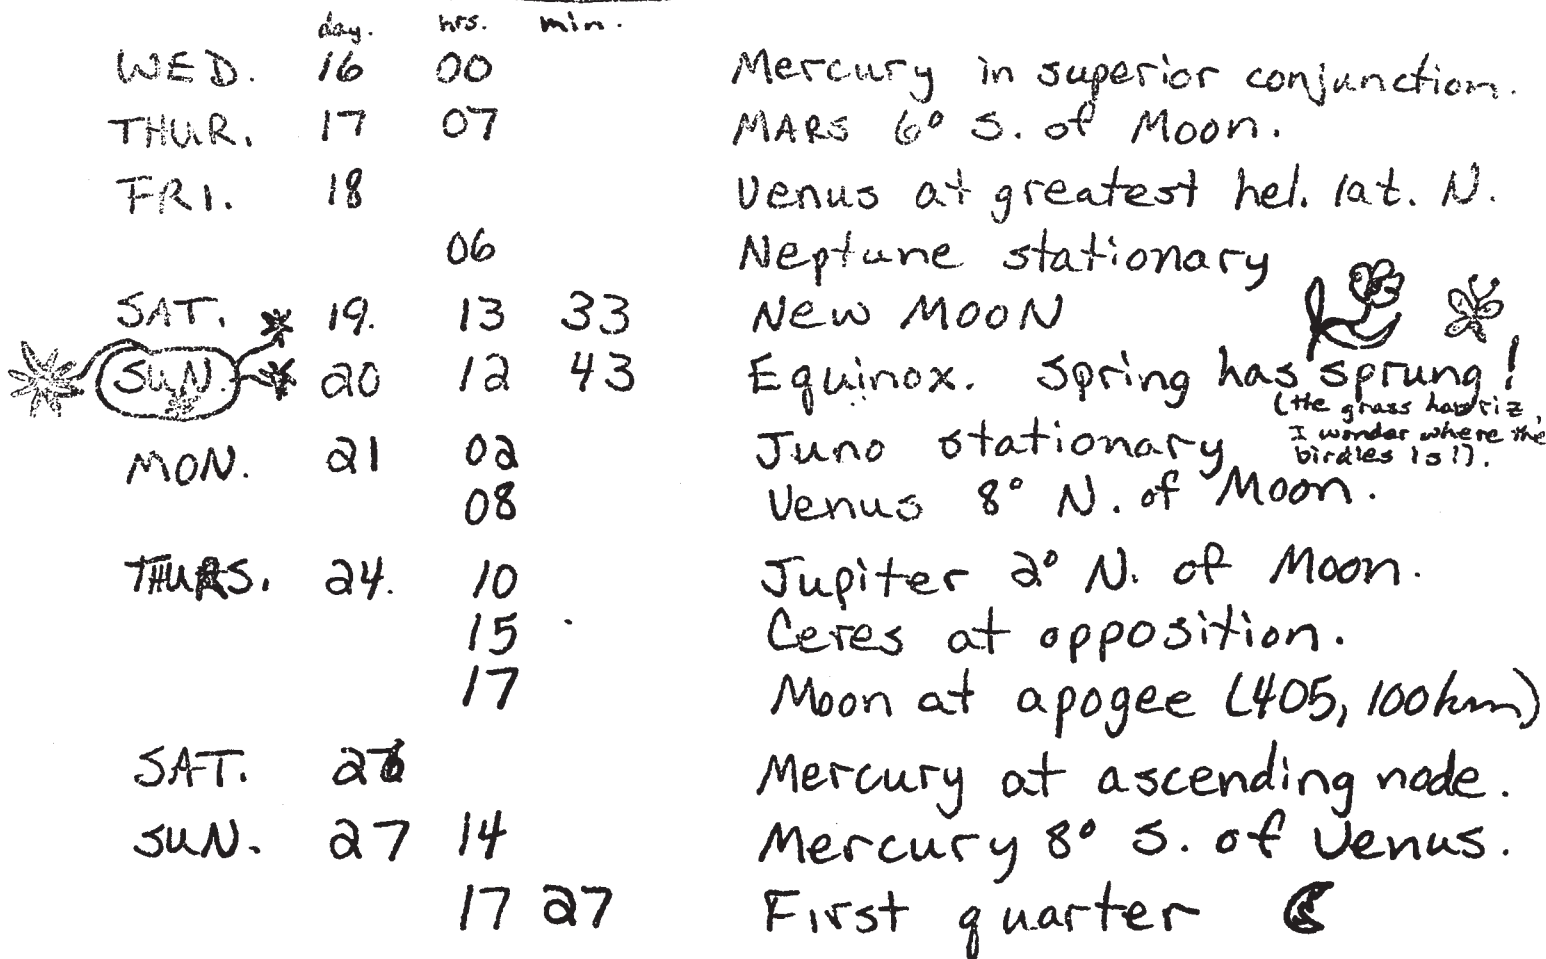 day. hrs. min.
WED. 16 00 Mercury in superior conjunction.
THUR. 17 07 MARS 6° S. of Moon.
FRI. 18 Venus at greatest hel. lat. N.
06 Neptune stationary
SAT. 19. 13 33 New MOON
SUN. 20 12 43 Equinox. Spring has sprung!
(the grass has riz,
I wonder where the
birdies is!).
MON. 21 02 Juno stationary
08 Venus 8° N. of Moon.
THURS. 24. 10 Jupiter 2° N. of Moon.
15 Ceres at opposition.
17 Moon at apogee (405,100km)
SAT. 26 Mercury at ascending node.
SUN. 27 14 Mercury 8° S. of Venus.
17 27 First quarter